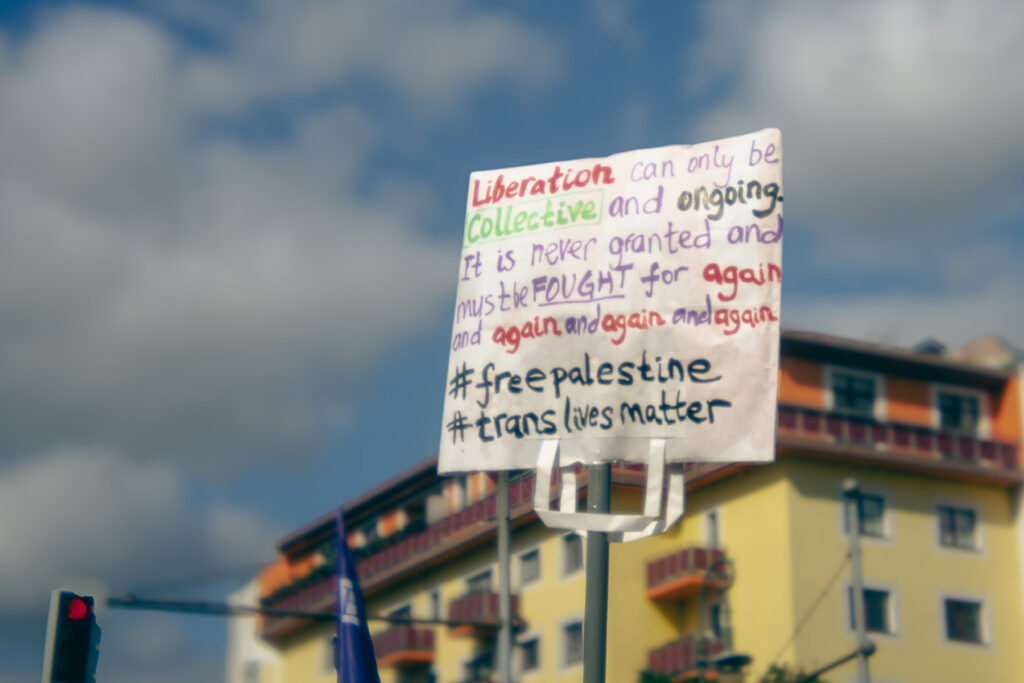 Liberation can only be
Collective and ongoing.
It is never granted and
must be FOUGHT for again
and again and again and again
#freepalestine
#translivesmatter